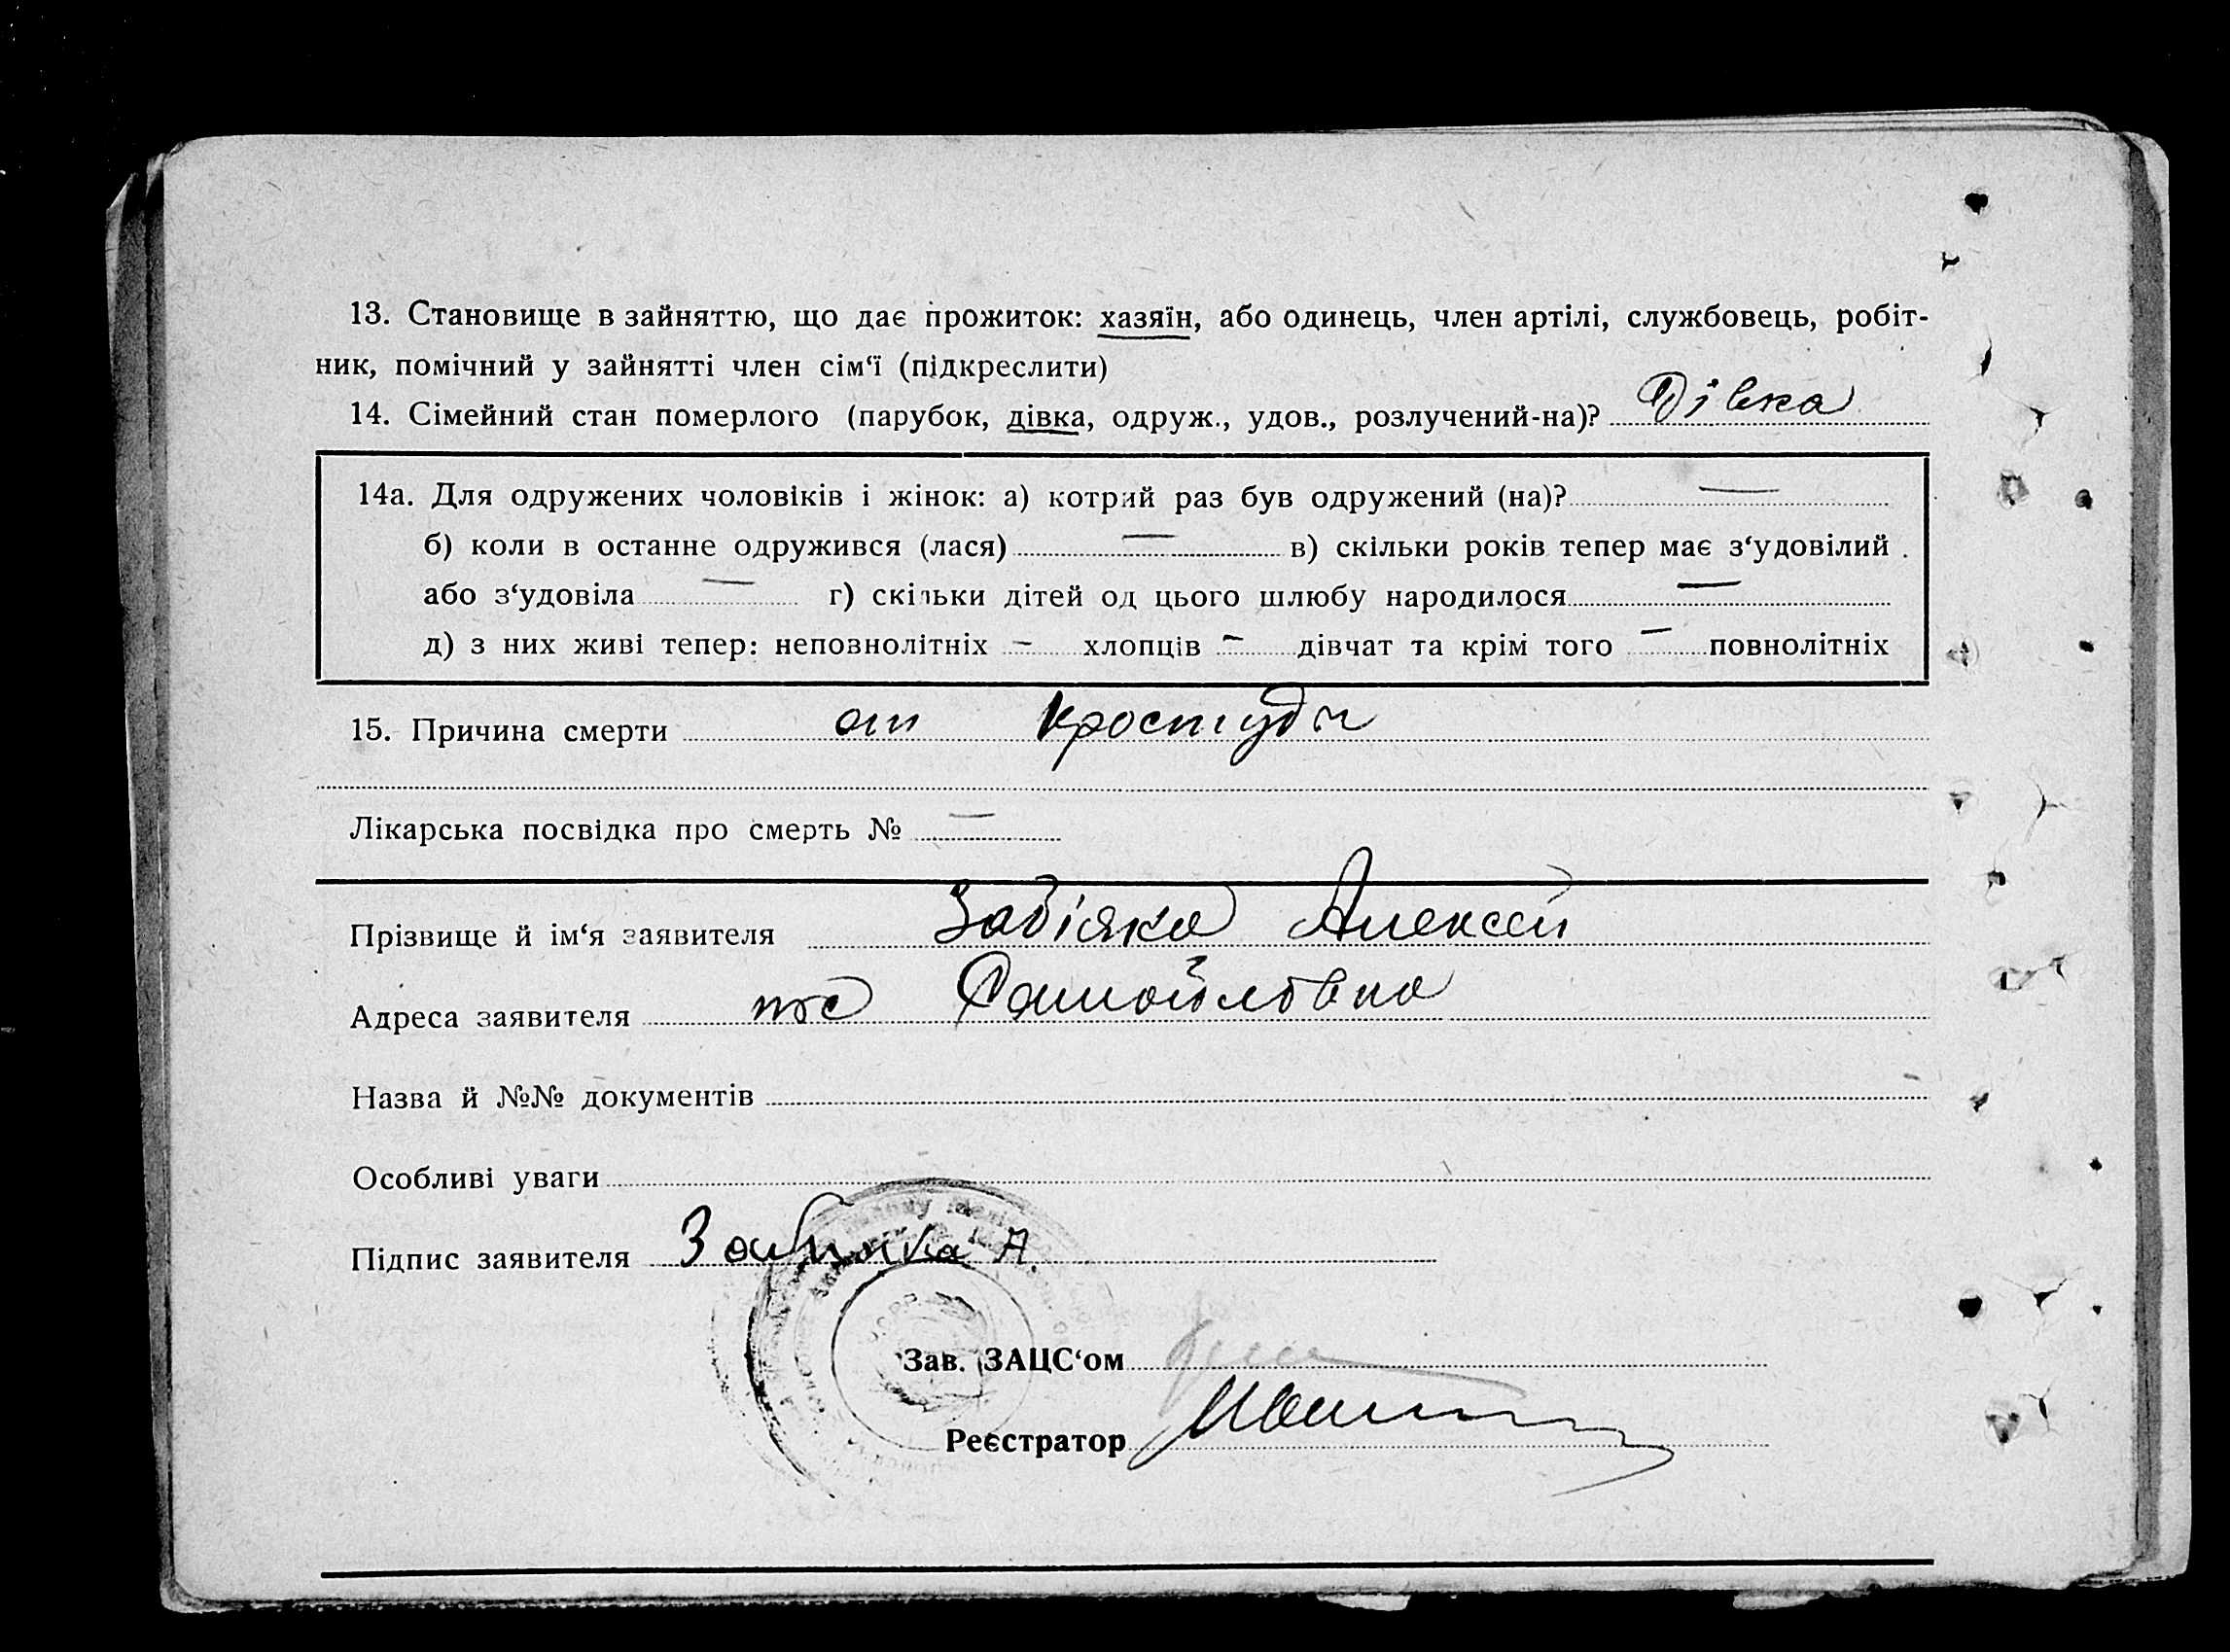 13. Становище в зайняттю, що дає прожиток: хазяїн, або одинець, член артілі, службовець, робіт-
ник, помічний у зайнятті член сім‘ї (підкреслити)
14. Сімейний стан померлого (парубок, дівка, одруж., удов., розлучений-на)? Дівка
14а. Для одружених чоловіків і жінок: а) котрий раз був одружений (на)? —
б) коли в останне одружився (лася) — в) скільки років тепер має з‘удовілий
або з‘удовіла — г) скільки дітей од цього шлюбу народилося —
д) з них живі тепер: неповнолітніх — хлопців — дівчат та крім того — повнолітніх
15. Причина смерти от простуды
Лікарська посвідка про смерть № —
Прізвище й ім‘я заявителя Забіяка Алексей
Адреса заявителя Самойловка
Назва й №№ документів
Особливі уваги
Підпис заявителя Забияка А.
Зав. ЗАЦС‘ом
Реєстратор